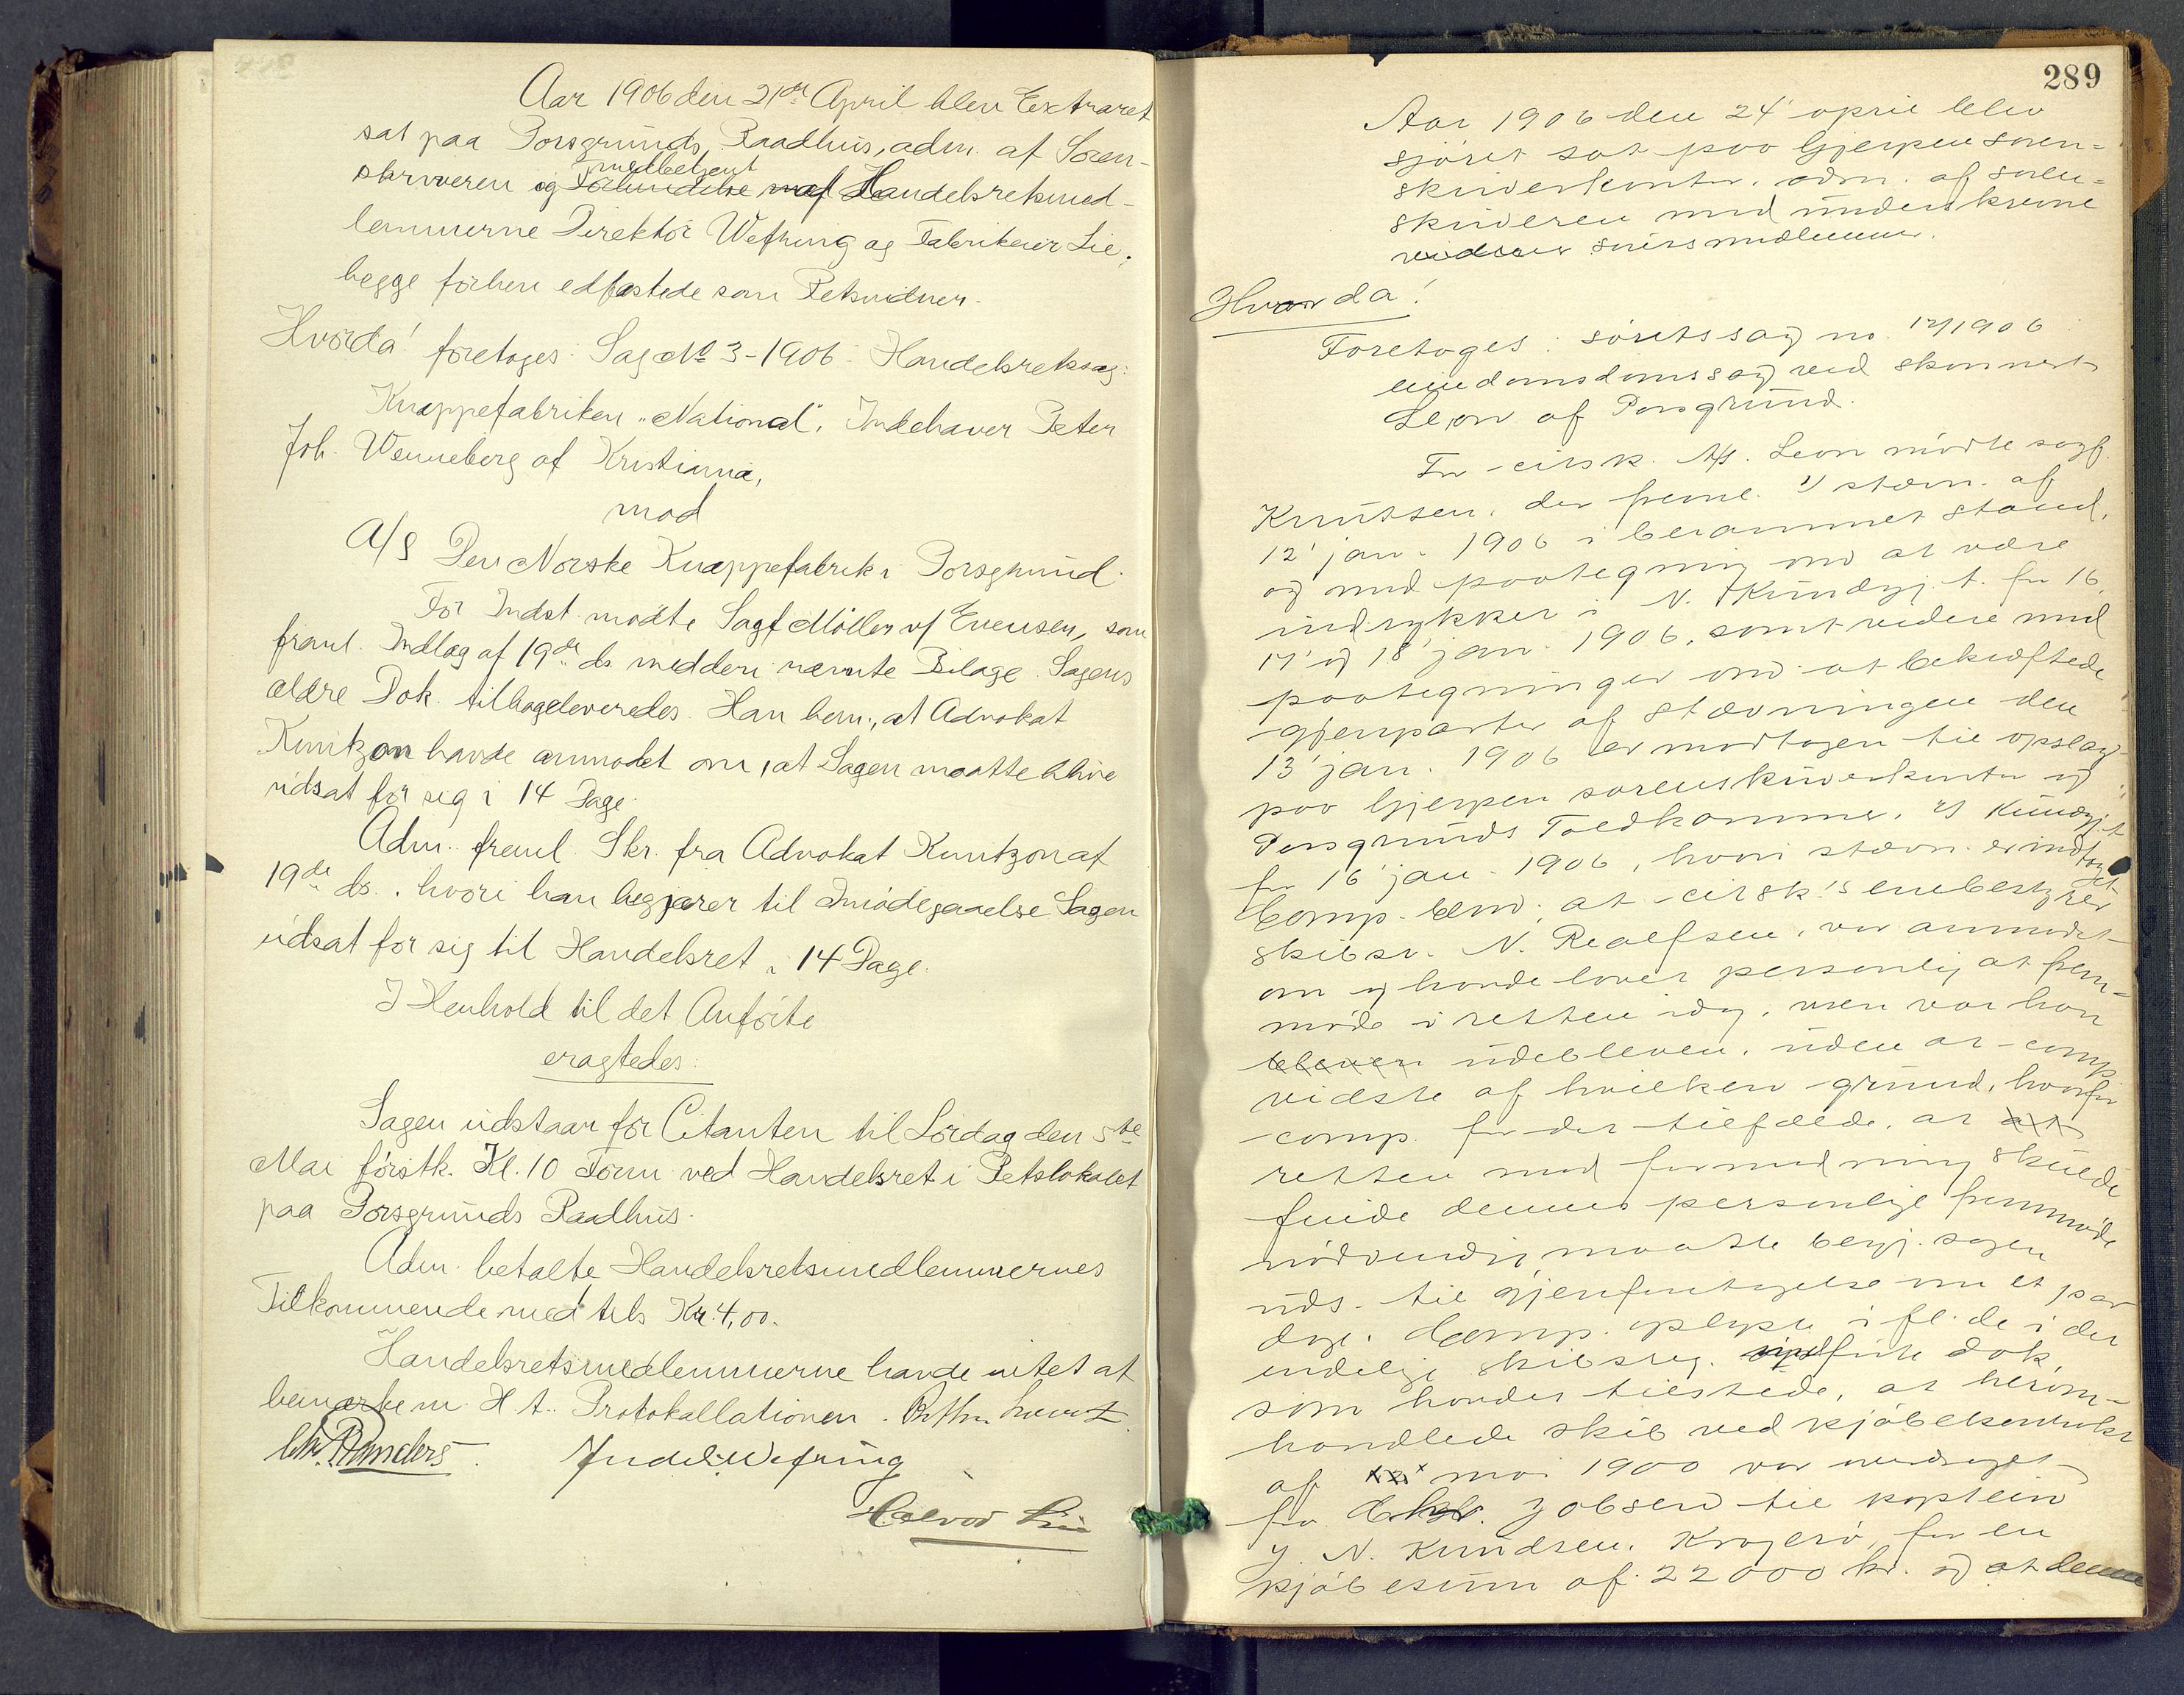 Aar 1906 den 21de April blev Extraret
sat paa Porsgrunds Raadhus, adm. af Soren-
skriveren og medbetjent Handelsretsmed-
lemmerne Direktör Wefring og Fabrikeier Lie,
begge forhen edfæstede som Retsvidner.
Hvorda! foretoges: Sag No 3-1906. Handelsretssag:
Knappefabriken "National", Indehaver Peter
Joh. Wenneberg af Kristiania,
mod
A/S Den Norske Knappefabrik i Porsgrund.
For Indst. mödte Sagf. Möller v/ Evensen, som
freml. Indlæg af 19de ds. med deri nævnte Bilage. Sagens
ældre Dok. tilbageleveredes. Han bem., at Advokat
Kuntzon havde anmodet om, at Sagen maatte blive
udsat for sig i 14 Dage.
Adm. freml. Skr. fra Advokat Kuntzon af
19de ds., hvori han begjærer til Imödegaaelse Sagen
udsat for sig til Handelsret i 14 Dage.
I Henhold til det Anförte
eragtedes:
Sagen udstaar for Citanten til Lördag den 5te
Mai förstk. Kl. 10 Form. ved Handelsret i Retslokalet
paa Porsgrunds Raadhus.
Adm. betalte Handelsretsmedlemmernes
Tilkommende med tils. Kr. 4,00.
Handelsretsmedlemmerne havde intet at
bemærke m. H. t. Protokollationen.
Chr. Randers. Wefring
Halvor Lie
289
Aar 1906 den 24' april blev
sjöret sat paa Gjerpen soren-
skriverkontor, adm. af soren-
skriveren med underskrevne
sörets medlemmer.
Hvorda!
Foretoges: söretssag no. 12/1906
eiendomsdomssag ved skonnert
Leon af Porsgrund.
For citsk. A/S. Leon mödte sagf.
Knutsen, der freml. 1) stævn. af
12' jan. 1906 i berammet stand,
og med paategning om at være
indrykket i N. Kundgj. t. for 16,
17' og 18' jan. 1906, samt videre med
paategninger om at bekræftede
gjenparter af stævningen den
13' jan. 1906 er modtagen til opslag
paa Gjerpen sorenskriverkontor og
Porsgrunds Toldkammer. 2) Kundgj.t
for 16' jan. 1906, hvori stævn. er indtaget
Comp. bem. at citsk's enebestyrer
skibsr. N. Realfsen, var anmodet
om og havde lovet personlig at frem-
möde i retten idag, men var han
udebleven, uden at comp.
vidste af hvilken grund, hvorfor
comp. for det tilfælde, at
retten mod formodning skulde
finde dennes personlige fremmöde
nödvendig, maatte begj. sagen
uds. til gjenforetagelse om et par
dage. Comp. oplyste i fl. de i det
endelige skibsreg. indförte dok,
som havdes tilstede, at herom-
handlede skib ved kjöbekontrakt
af mai 1900 var overdraget
fra Jobsen til kaptein
J. N. Knudsen, Kragerö, for en
kjöbesum af 22000 kr. og at denne